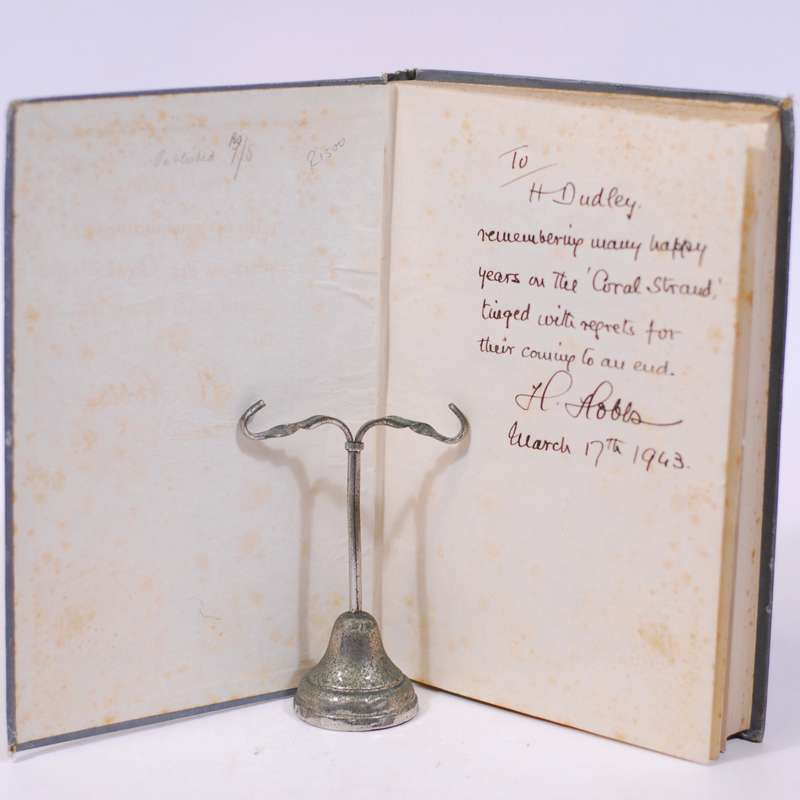 Published 7/6
2500
To
H Dudley.
remembering many happy
years on the 'Coral Strand,'
tinged with regrets for
their coming to an end.
H. Hobbs
March 17th 1943.